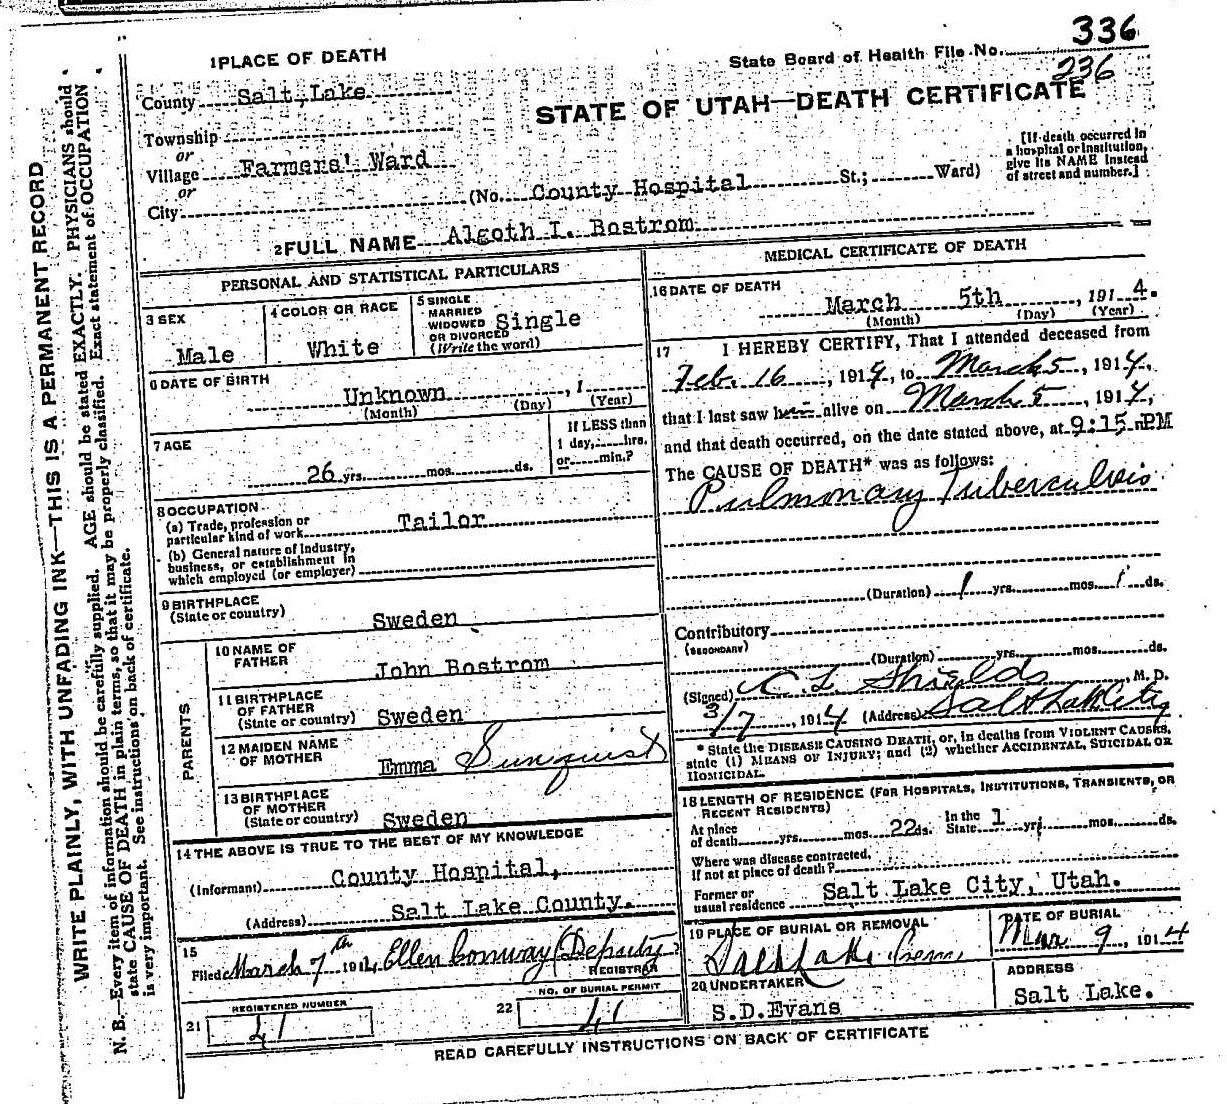 336
State Board of Health File No.
236
1 PLACE OF DEATH
County Salt Lake
STATE OF UTAH—DEATH CERTIFICATE
Township
or
Village Farmers' Ward
or
City
(No. County Hospital St.; Ward)
[If death occurred in
a hospital or institution,
give its NAME instead
of street and number.]
2 FULL NAME Algoth I. Bostrom
PERSONAL AND STATISTICAL PARTICULARS
3 SEX
Male
4 COLOR OR RACE
White
5 SINGLE
MARRIED
WIDOWED
OR DIVORCED
(Write the word)
Single
6 DATE OF BIRTH
Unknown , 1
(Month) (Day) (Year)
7 AGE
26 yrs. mos. ds.
If LESS than
1 day, hrs.
or min.?
8 OCCUPATION
(a) Trade, profession or
particular kind of work Tailor
(b) General nature of industry,
business, or establishment in
which employed (or employer)
9 BIRTHPLACE
(State or country) Sweden
PARENTS
10 NAME OF
FATHER John Bostrom
11 BIRTHPLACE
OF FATHER
(State or country) Sweden
12 MAIDEN NAME
OF MOTHER Emma Sunquist
13 BIRTHPLACE
OF MOTHER
(State or country) Sweden
14 THE ABOVE IS TRUE TO THE BEST OF MY KNOWLEDGE
(Informant) County Hospital,
(Address) Salt Lake County.
15
Filed March 7th 1914 Ellen Conway (Deputy)
REGISTRAR
21 REGISTERED NUMBER
41
22 NO. OF BURIAL PERMIT
41
MEDICAL CERTIFICATE OF DEATH
16 DATE OF DEATH
March 5th , 1914.
(Month) (Day) (Year)
17 I HEREBY CERTIFY, That I attended deceased from
Feb. 16 , 1914, to March 5 , 1914,
that I last saw him alive on March 5 , 1914,
and that death occurred, on the date stated above, at 9:15 PM
The CAUSE OF DEATH* was as follows:
Pulmonary Tuberculosis
(Duration) 1 yrs. mos. 1 ds.
Contributory
(SECONDARY)
(Duration) yrs. mos. ds.
(Signed) C. L. Shields , M. D.
3/7 , 1914 (Address) Salt Lake City
* State the DISEASE CAUSING DEATH, or, in deaths from VIOLENT CAUSES,
state (1) MEANS OF INJURY; and (2) whether ACCIDENTAL, SUICIDAL OR
HOMICIDAL.
18 LENGTH OF RESIDENCE (FOR HOSPITALS, INSTITUTIONS, TRANSIENTS, OR
RECENT RESIDENTS)
At place
of death yrs. mos. 22 ds. In the
State 1 yr. mos. ds.
Where was disease contracted,
if not at place of death?
Former or
usual residence Salt Lake City, Utah.
19 PLACE OF BURIAL OR REMOVAL
Salt Lake Cem
DATE OF BURIAL
Mar 9 , 1914
20 UNDERTAKER
S.D.Evans
ADDRESS
Salt Lake.
READ CAREFULLY INSTRUCTIONS ON BACK OF CERTIFICATE
WRITE PLAINLY, WITH UNFADING INK—THIS IS A PERMANENT RECORD
N. B.—Every item of information should be carefully supplied. AGE should be stated EXACTLY. PHYSICIANS should
state CAUSE OF DEATH in plain terms, so that it may be properly classified. Exact statement of OCCUPATION
is very important. See instructions on back of certificate.